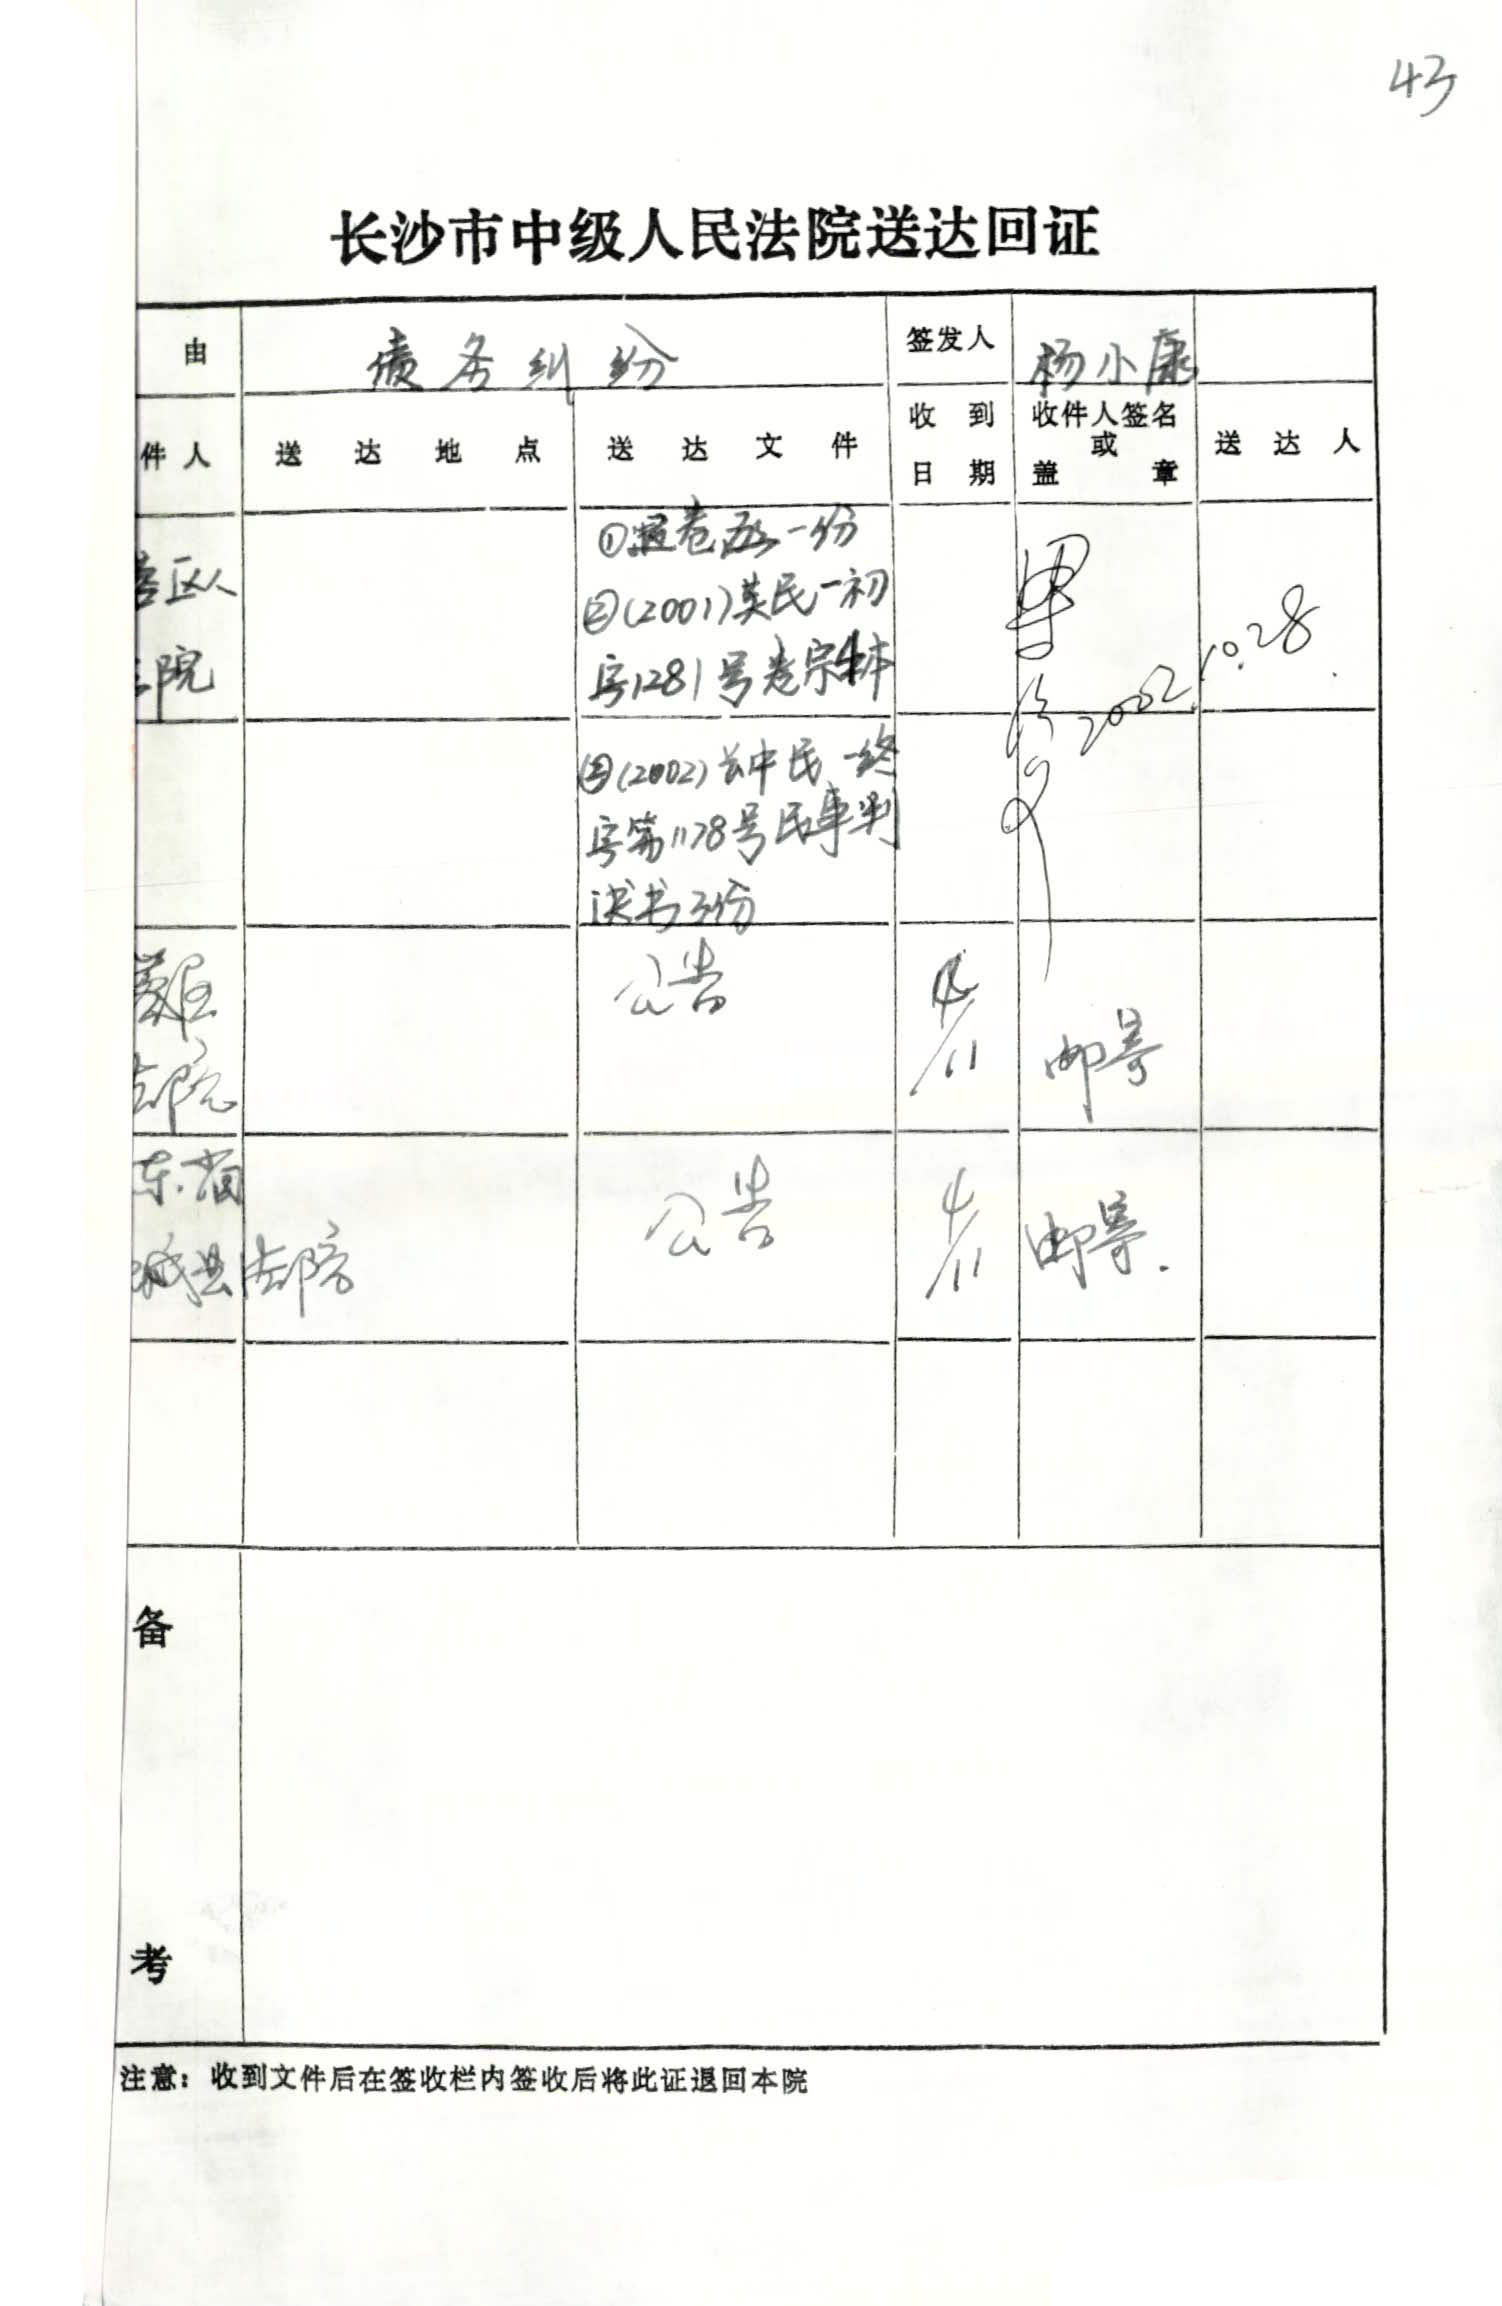 43
长沙市中级人民法院送达回证
由
债务纠纷
签发人
杨小康
件人
送达地点
送达文件
收到
日期
收件人签名
或
盖章
送达人
区人
院
①退卷函一份
②(2001)芙民一初
字1281号卷宗4本
2002.10.28
③(2002)长中民一终
字第1178号民事判
决书3份
芙区
法院
公告
4/11
邮寄
东省
城县法院
公告
4/11
邮寄.
备
考
注意：收到文件后在签收栏内签收后将此证退回本院